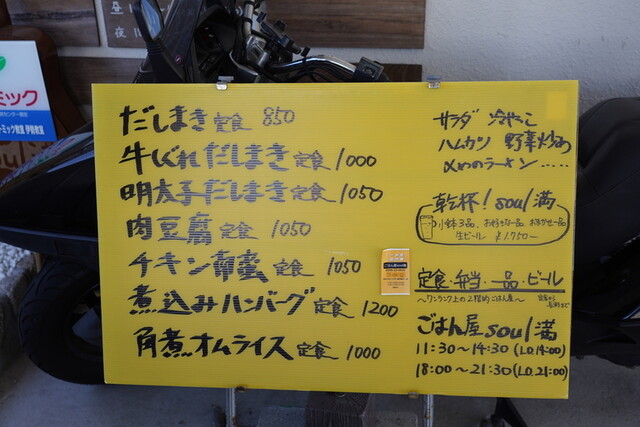 だしまき定食 850
牛しぐれだしまき定食 1000
明太子だしまき定食 1050
肉豆腐定食 1050
チキン南蛮定食 1050
煮込みハンバーグ定食 1200
角煮オムライス定食 1000
サラダ 冷やっこ
ハムカツ 野菜炒め
〆のラーメン‥‥‥
乾杯!soul満
小鉢3品、お好きな一品、おまかせ一品
生ビール ¥1,750〜
定食・弁当・一品・ビール
〜ワンランク上の2階的ごはん屋〜
ごはん屋soul満
11:30〜14:30(L.O.14:00)
18:00〜21:30(L.O.21:00)
昼
夜
ミック